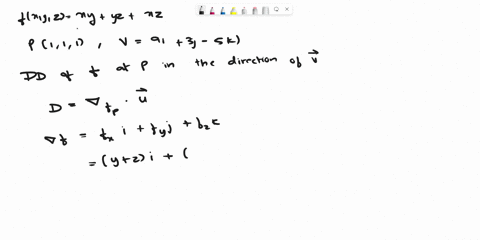 f(x,y,z) = xy + yz + xz
P(1,1,1) , V = 9i + 3j - 5k)
DD of f at P in the direction of v⃗
D = ∇f_P · u⃗
∇f = f_x i + f_y j + f_z k
= (y+z) i + (